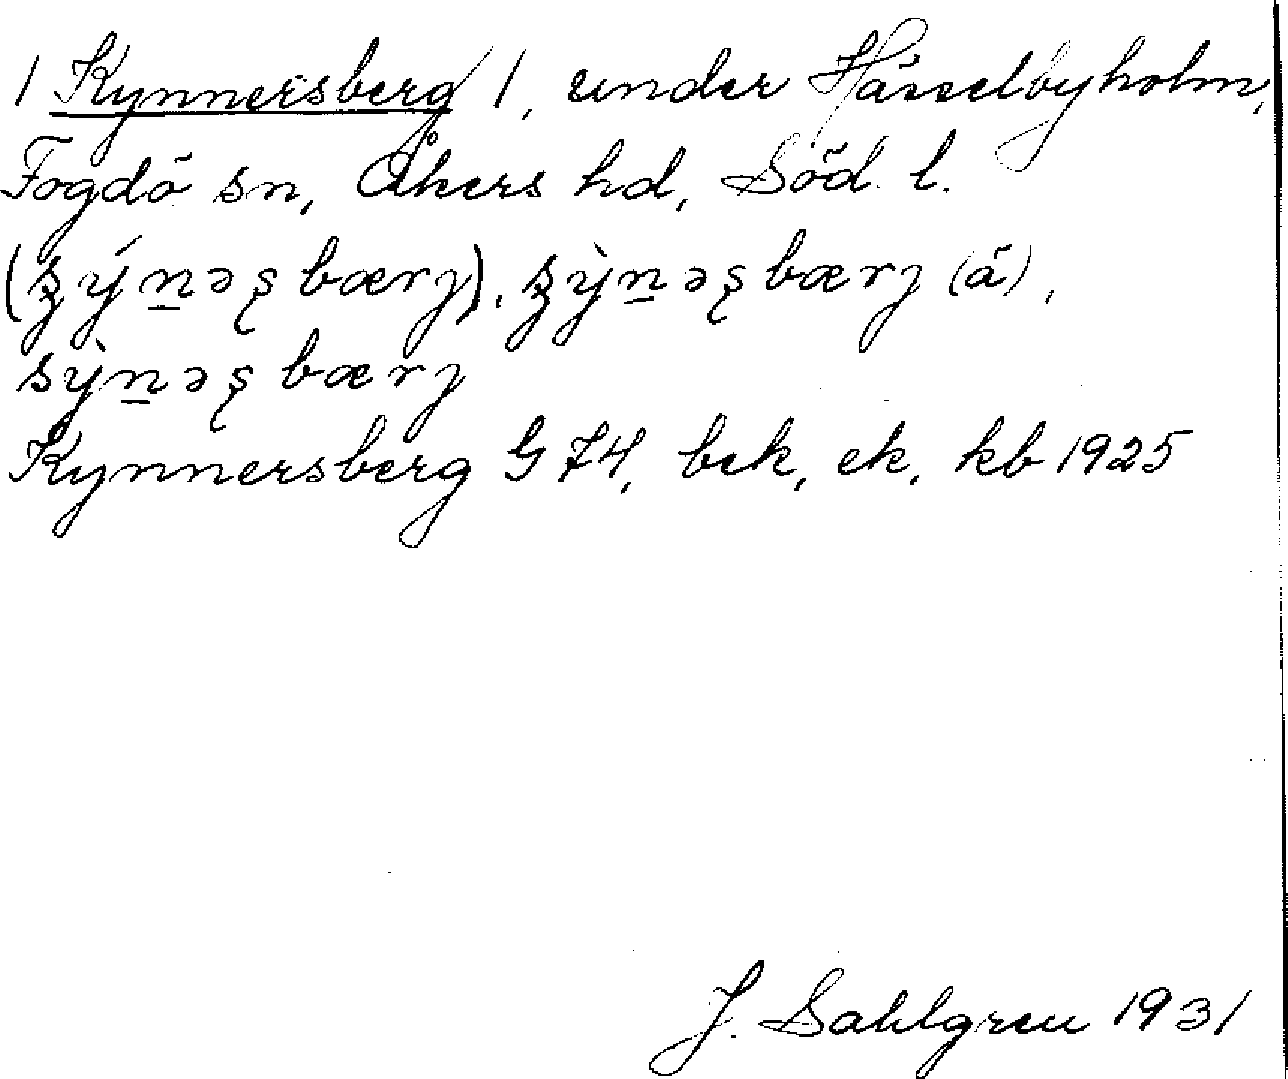 / Kynnersberg /, under Hässelbyholm,
Fogdö sn, Åkers hd, Söd. l.
(ʂýn̲əʂbærj), ʂỳn̲əʂbærj (ä),
sỳn̲əʂbærj
Kynnersberg G 74, bek, ek, kb 1925
J. Sahlgren 1931